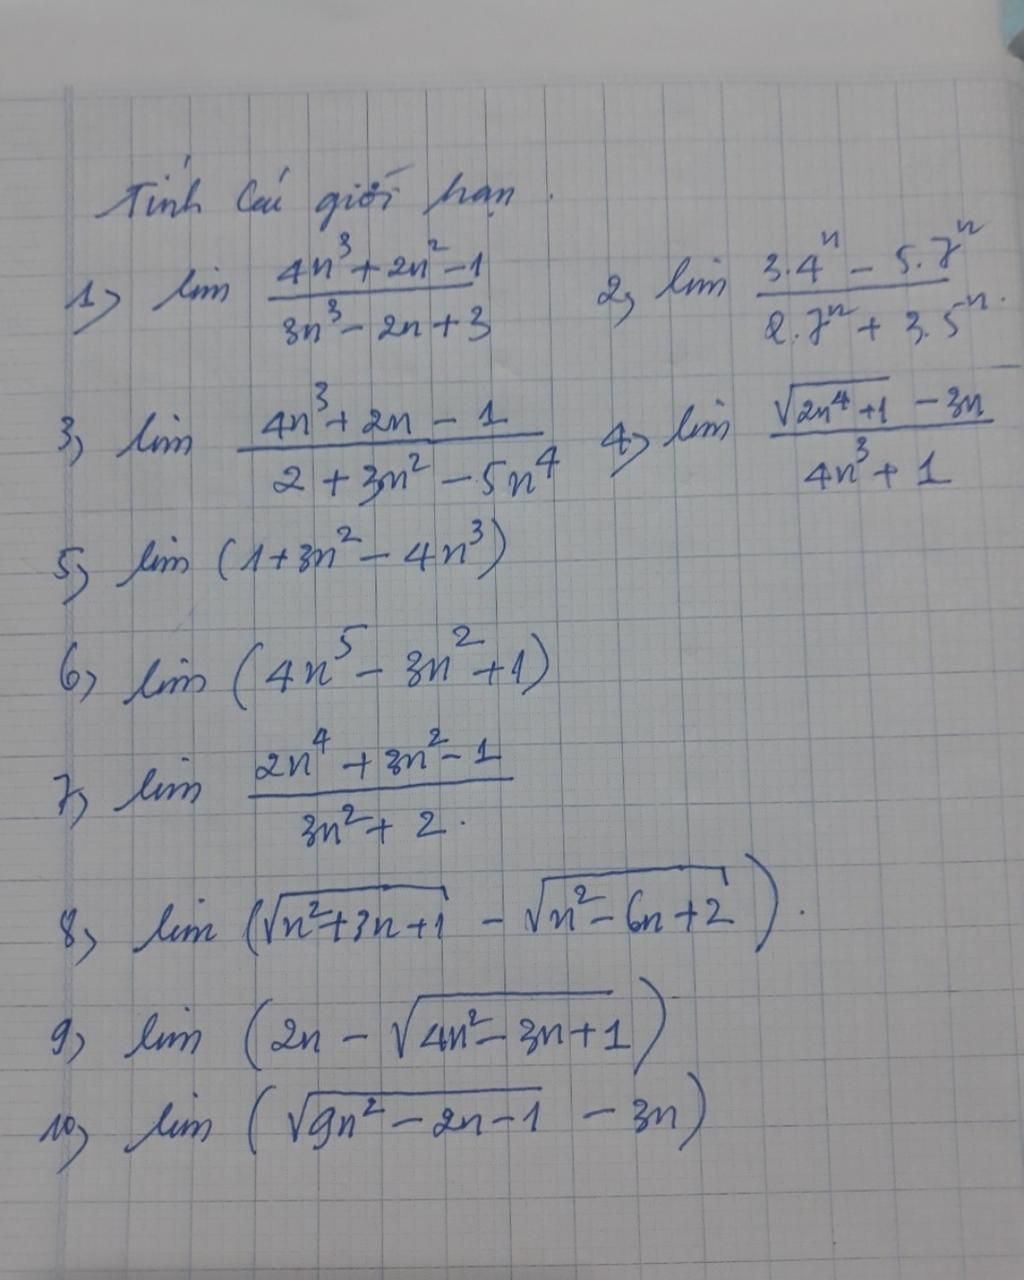 Tính các giới hạn.
1) lim (4n³ + 2n² - 1)/(3n³ - 2n + 3) 2) lim (3.4ⁿ - 5.7ⁿ)/(2.7ⁿ + 3.5ⁿ).
3) lim (4n³ + 2n - 1)/(2 + 3n² - 5n⁴) 4) lim (√(2n⁴ + 1) - 3n)/(4n³ + 1)
5) lim (1 + 3n² - 4n³)
6) lim (4n⁵ - 3n² + 1)
7) lim (2n⁴ + 3n² - 1)/(3n² + 2).
8) lim (√(n² + 3n + 1) - √(n² - 6n + 2)).
9) lim (2n - √(4n² - 3n + 1))
10) lim (√(9n² - 2n - 1) - 3n)